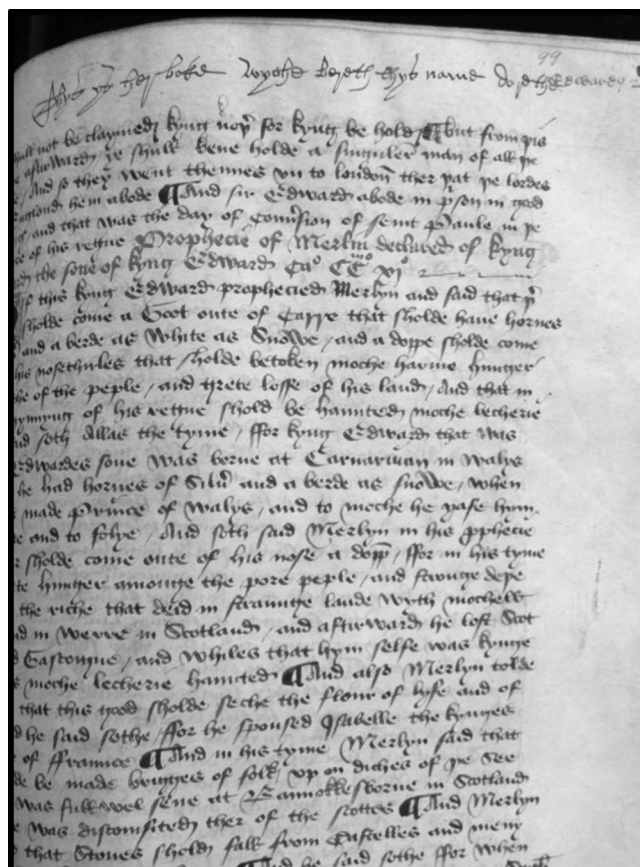 99
Thys ys her boke Whyche Bereth thys name
shall not be claymed kyng ne for kyng be hold ¶ but from þis
afturward ye shull bene holde a singuler man of all þe
And so they went thennes vn to london ther þat þe lordes
englond hem abode ¶ And sir Edward abode in prison in god
and that was the day of Conuersion of seint Paule in þe
of his regne Prophecie of Merlin declared of kyng
the sone of kyng Edward Cao CCxio
Of this kyng Edward prophecied Merlyn and said that þer
sholde come a Goot oute of Carre that sholde haue hornes
and a berde as White as Snowe / and a droppe sholde come
his nosethirles that sholde betoken moche harme hunger
of the peple / and grete losse of his land / And that in
gynnyng of his regne shold be haunted moche lecherie
said soth Allas the tyme / ffor kyng Edward that was
Edwardes sone was borne at Carnarivan in Walys
he had hornes of Siluer and a berde as snowe / when
made Prince of Walys / and to moche he yafe hym
and to folye / And soth said Merlyn in his prophecie
sholde come oute of his nose a dropp / ffor in his tyme
hunger amonge the pore peple / and stronge depe
the riche that deid in straunge lande wyth mochell
and in werre in Scotland / and afturward he lost Scot
Gascongne / and whiles that hym selfe was kynge
moche lecherie haunted ¶ And also Merlyn tolde
that this good sholde seche the flour of lyfe and of
he said sothe / ffor he spoused Isabelle the kynges
of ffraunce ¶ And in his tyme Merlyn said that
be made brugges of folk / vp on diches of þe See
was full wel sene at Bannokkesborne in Scotland
was discomfited ther of the scottes ¶ And Merlyn
that Stones shold fall from Castelles and meny
And he said sothe ffor when